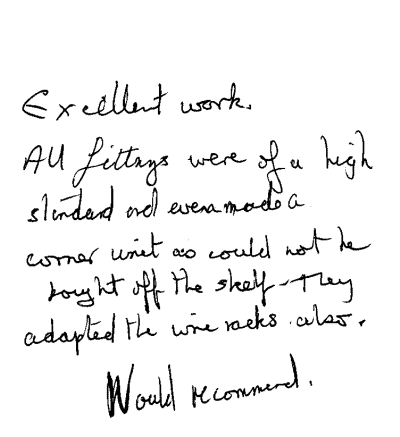 Excellent work.
All fittings were of a high
standard and even made a
corner unit as could not be
bought off the shelf - They
adapted the wine racks also.
Would recommend.